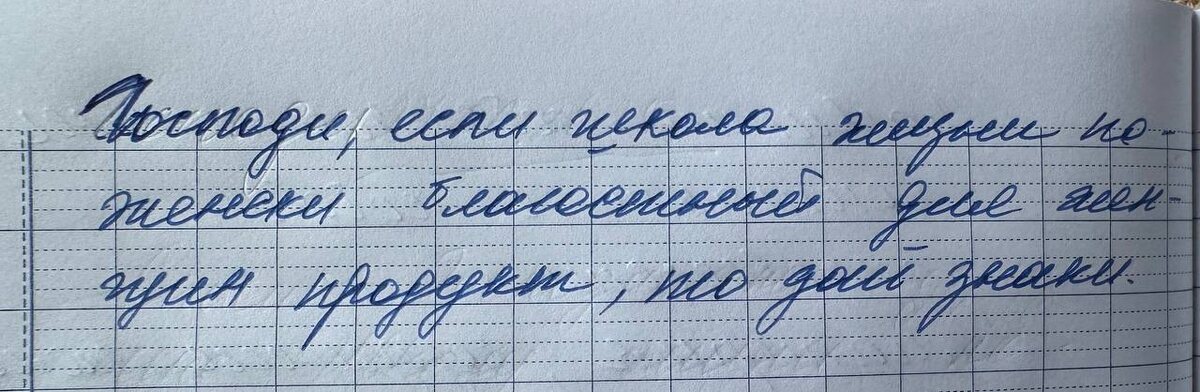 Господи, если школа жизни по-
женски благостный для жен-
щин продукт, то дай знаки.